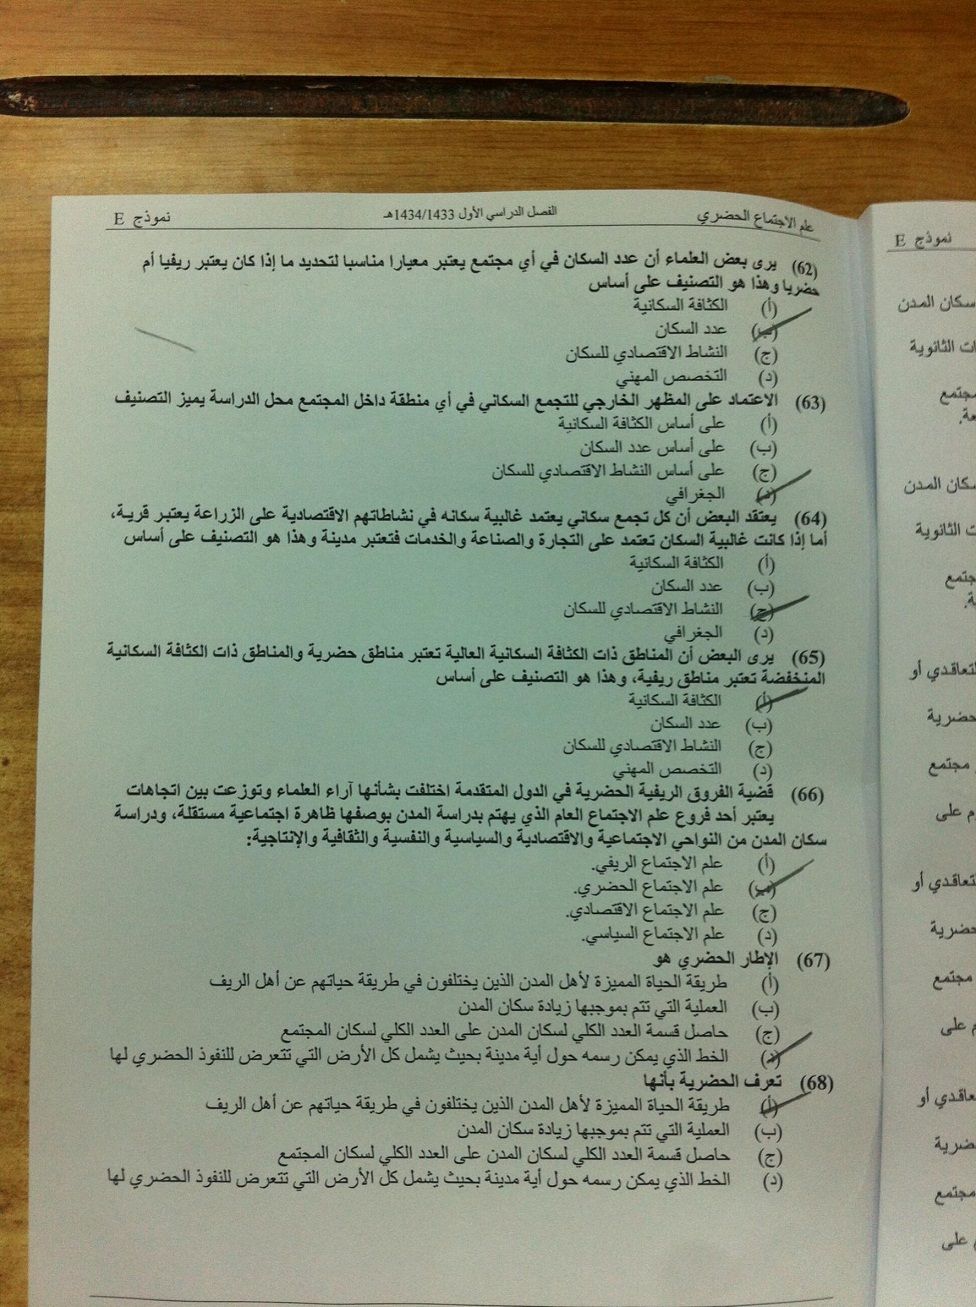 علم الاجتماع الحضري الفصل الدراسي الأول 1434/1433هـ نموذج E
(62) يرى بعض العلماء أن عدد السكان في أي مجتمع يعتبر معيارا مناسبا لتحديد ما إذا كان يعتبر ريفيا أم
حضريا وهذا هو التصنيف على أساس
(أ) الكثافة السكانية
(ب) عدد السكان
(ج) النشاط الاقتصادي للسكان
(د) التخصص المهني
(63) الاعتماد على المظهر الخارجي للتجمع السكاني في أي منطقة داخل المجتمع محل الدراسة يميز التصنيف
(أ) على أساس الكثافة السكانية
(ب) على أساس عدد السكان
(ج) على أساس النشاط الاقتصادي للسكان
(د) الجغرافي
(64) يعتقد البعض أن كل تجمع سكاني يعتمد غالبية سكانه في نشاطاتهم الاقتصادية على الزراعة يعتبر قرية،
أما إذا كانت غالبية السكان تعتمد على التجارة والصناعة والخدمات فتعتبر مدينة وهذا هو التصنيف على أساس
(أ) الكثافة السكانية
(ب) عدد السكان
(ج) النشاط الاقتصادي للسكان
(د) الجغرافي
(65) يرى البعض أن المناطق ذات الكثافة السكانية العالية تعتبر مناطق حضرية والمناطق ذات الكثافة السكانية
المنخفضة تعتبر مناطق ريفية، وهذا هو التصنيف على أساس
(أ) الكثافة السكانية
(ب) عدد السكان
(ج) النشاط الاقتصادي للسكان
(د) التخصص المهني
(66) قضية الفروق الريفية الحضرية في الدول المتقدمة اختلفت بشأنها آراء العلماء وتوزعت بين اتجاهات
يعتبر أحد فروع علم الاجتماع العام الذي يهتم بدراسة المدن بوصفها ظاهرة اجتماعية مستقلة، ودراسة
سكان المدن من النواحي الاجتماعية والاقتصادية والسياسية والنفسية والثقافية والإنتاجية:
(أ) علم الاجتماع الريفي.
(ب) علم الاجتماع الحضري.
(ج) علم الاجتماع الاقتصادي.
(د) علم الاجتماع السياسي.
(67) الإطار الحضري هو
(أ) طريقة الحياة المميزة لأهل المدن الذين يختلفون في طريقة حياتهم عن أهل الريف
(ب) العملية التي تتم بموجبها زيادة سكان المدن
(ج) حاصل قسمة العدد الكلي لسكان المدن على العدد الكلي لسكان المجتمع
(د) الخط الذي يمكن رسمه حول أية مدينة بحيث يشمل كل الأرض التي تتعرض للنفوذ الحضري لها
(68) تعرف الحضرية بأنها
(أ) طريقة الحياة المميزة لأهل المدن الذين يختلفون في طريقة حياتهم عن أهل الريف
(ب) العملية التي تتم بموجبها زيادة سكان المدن
(ج) حاصل قسمة العدد الكلي لسكان المدن على العدد الكلي لسكان المجتمع
(د) الخط الذي يمكن رسمه حول أية مدينة بحيث يشمل كل الأرض التي تتعرض للنفوذ الحضري لها
نموذج E
سكان المدن
الثانوية
مجتمع
سكان المدن
الثانوية
مجتمع
التعاقدي أو
حضرية
مجتمع
على
أو
حضرية
مجتمع
على
أو
مجتمع
على